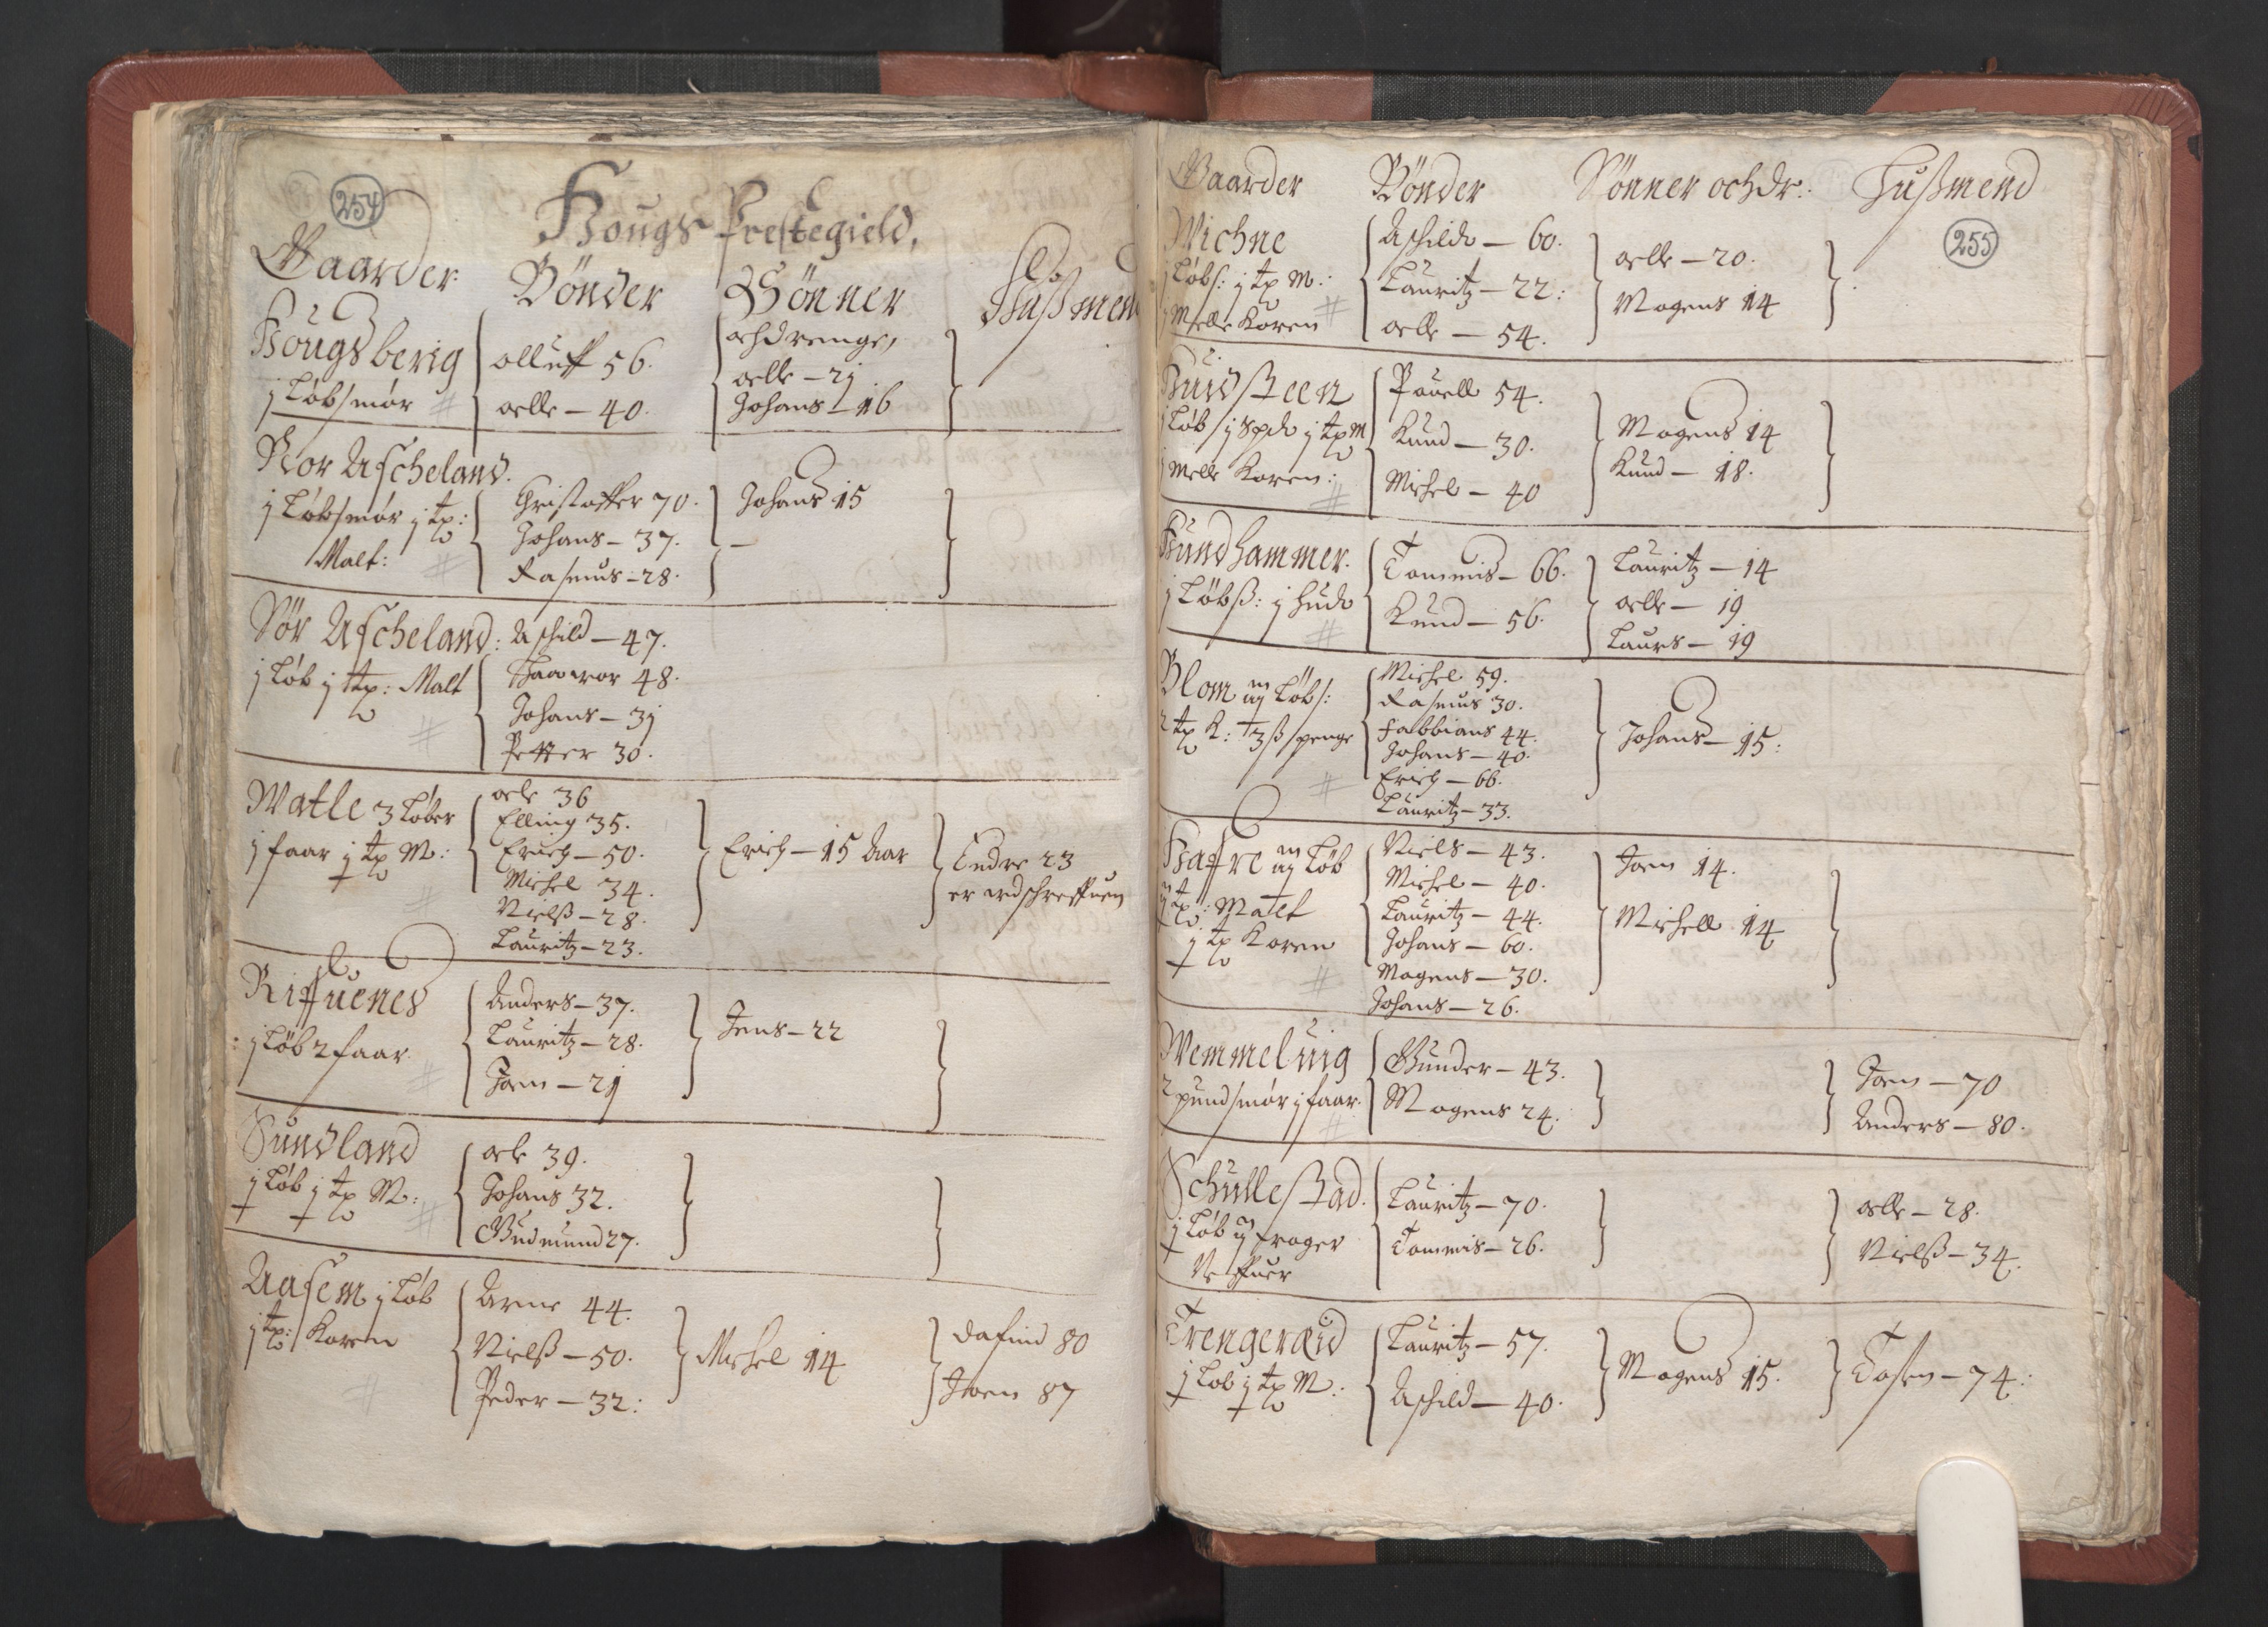 254
Hougs Prestegield,
Gaarder Bönder Sönner Hußmend
ochdrenge,
Hougsberig
j Löb smör
olluff 56.
oelle – 40.
oelle – 2j
Johans – 16
Nor Ascheland.
j Löbsmör j tp:
Malt:
Christoffer 70.
Johans – 37.
Rasmus – 28.
Johans 15
Sör Ascheland:
j Löb j tp: Malt
Aschild – 47.
Haavor 48.
Johans – 3j
Petter 30.
Watle 3 Löber
j faar j tp M:
oele 36
Elling 35.
Erich – 50.
Michel 34.
Nielß – 28.
Lauritz – 23.
Erich – 15 Aar
Endre 23
er udschreffuen
Riffuenes
j Löb 2 faar.
Anders – 37.
Lauritz – 28.
Joen – 2j
Jens – 22
Sundland
j Löb j tp M:
oele 39.
Johans 32.
Gudmund 27.
Aasem j Löb
j tp: Koren
Arne 44.
Nielß – 50.
Peder – 32:
Michel 14
Dafind 80
Joen 87
255
Gaarder Bönder Sönner och dr: Hußmend
Wichne
j Löbs: j tp M:
j Mele Koren
Aschild – 60.
Lauritz – 22:
oelle – 54.
oelle – 20.
Mogens 14
Huidsteen
j Löb j spd j tp M
j Mele Koren:
Pouell 54.
Knud – 30.
Michel – 40
Mogens 14
Knud – 18.
Hundhammer.
j Löbß: j hud
Tommis – 66.
Knud – 56.
Lauritz – 14
oelle – 19
Laurs – 19
Blom Löbs:
2 tp K: ß penge
Michel 59.
Rasmus 30.
Fabbians 44.
Johans – 40.
Erich – 66.
Lauritz – 33.
Johans – 15:
Haffre Löb
tp: Malt
j tp Koren
Niels – 43.
Michel – 40.
Lauritz – 44.
Johans – 60.
Mogens – 30.
Johans – 26.
Joen 14.
Michell 14
Wemmeluig
2 pund smör j faar.
Gunder – 43.
Mogens 24.
Joen – 70
Anders – 80.
Schullestad.
j Löb
Lauritz – 70.
Tommis – 26.
oelle – 28.
Nielß – 34.
Trengereid
j Löb j tp M:
Lauritz – 57.
Aschild – 40.
Mogens 15.
Tosten – 74: